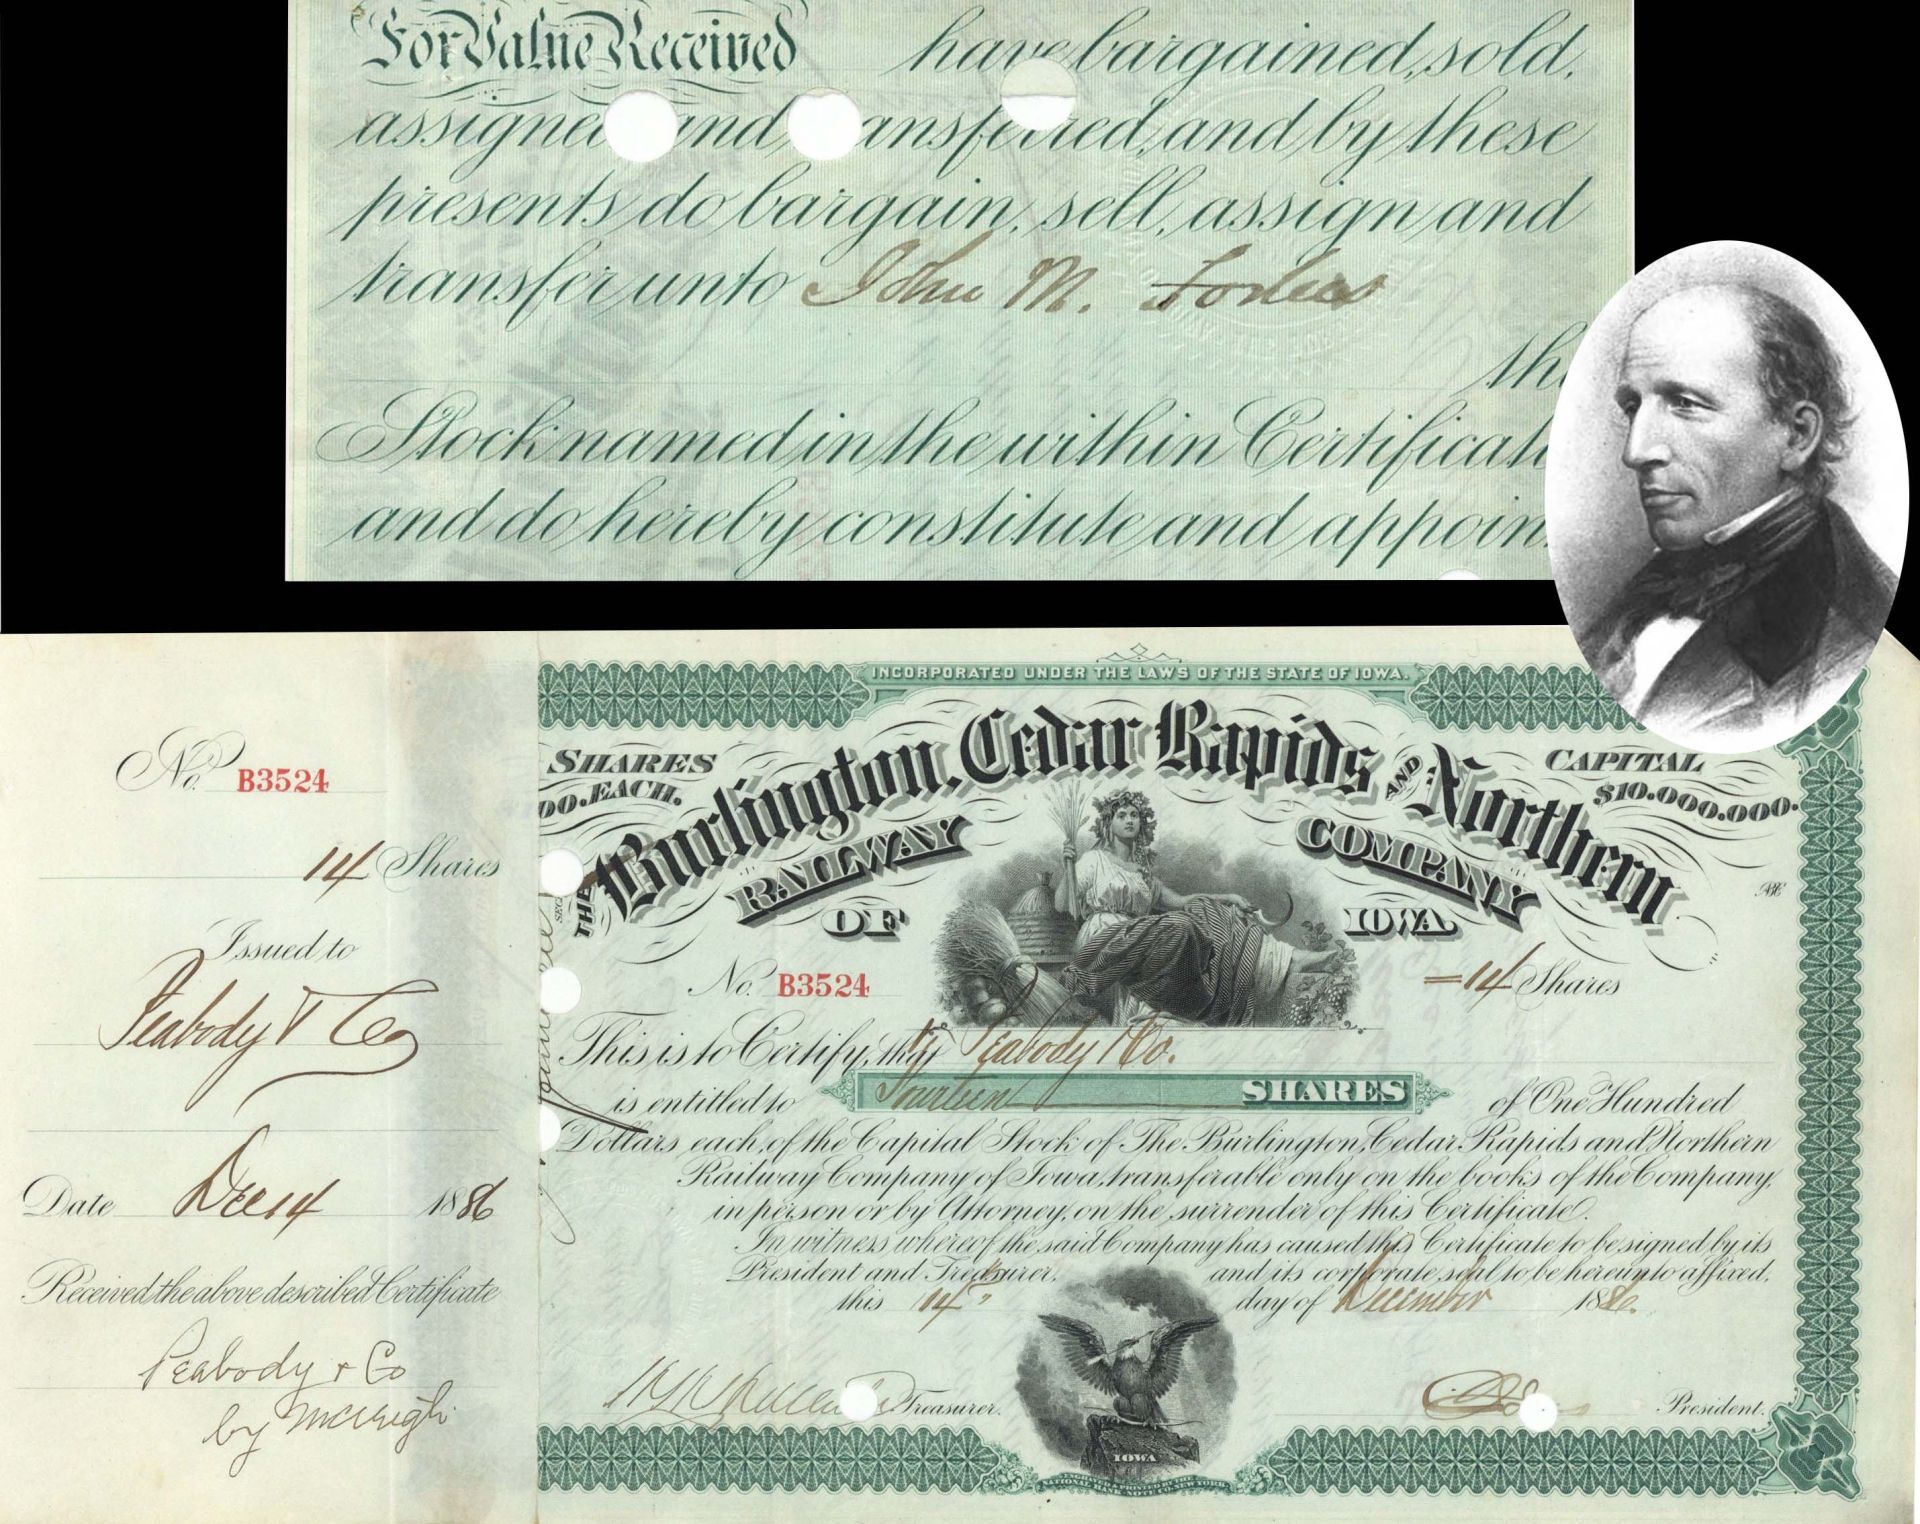 For Value Received have bargained, sold,
assigned and transferred, and by these
presents do bargain, sell, assign and
transfer unto John M. Forbes
the
Stock named in the within Certificate
and do hereby constitute and appoin
No. B3524
14 Shares
Issued to
Peabody & Co
Date Dec 14 1886
Received the above described Certificate
Peabody & Co
by
INCORPORATED UNDER THE LAWS OF THE STATE OF IOWA.
SHARES
00. EACH.
CAPITAL
$10.000.000.
THE Burlington, Cedar Rapids AND Northern
RAILWAY COMPANY
OF IOWA.
No. B3524
=14 Shares
This is to Certify, that Peabody & Co.
is entitled to Fourteen SHARES of One Hundred
Dollars each, of the Capital Stock of The Burlington, Cedar Rapids and Northern
Railway Company of Iowa, transferable only on the books of the Company,
in person or by Attorney, on the surrender of this Certificate.
In witness whereof the said Company has caused this Certificate to be signed by its
President and Treasurer, and its corporate seal to be hereunto affixed,
this 14th day of December 1886.
Treasurer.
President.
IOWA
ENGRAVED & PRINTED BY THE
NATIONAL BANK-NOTE CO. NEW YORK